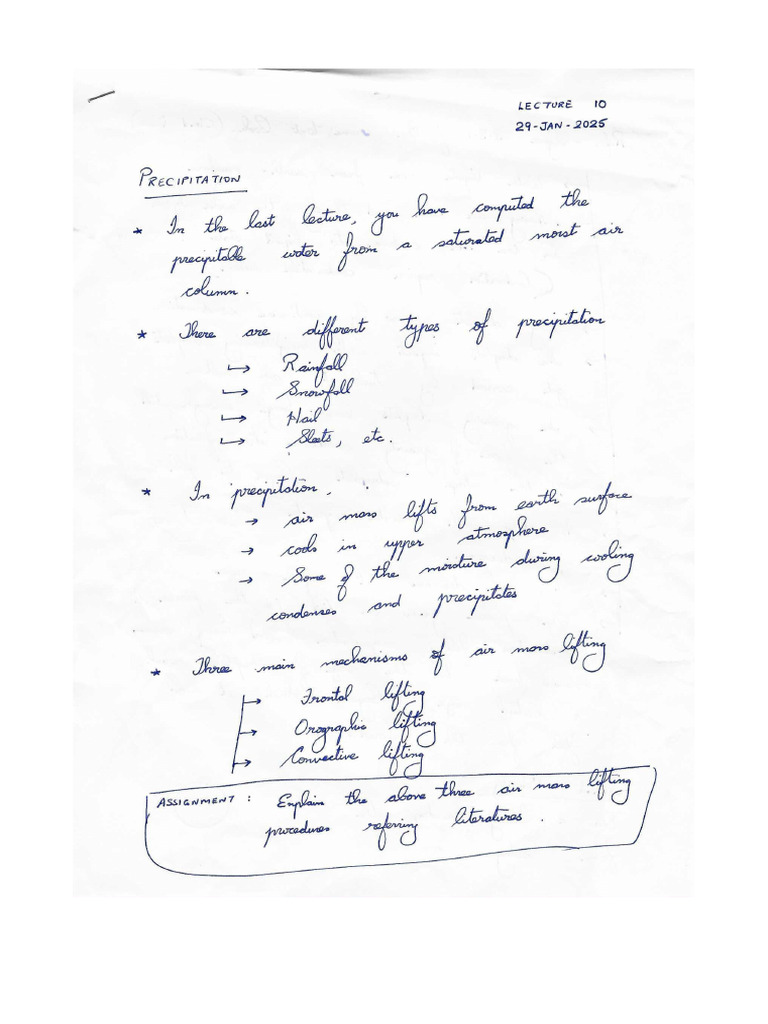 LECTURE 10
29-JAN-2025
PRECIPITATION
* In the last lecture, you have computed the
precipitable water from a saturated moist air
column.
* There are different types of precipitation
↳ Rainfall
↳ Snowfall
↳ Hail
↳ Sleets, etc.
* In precipitation,
→ air mass lifts from earth surface
→ cools in upper atmosphere
→ Some of the moisture during cooling
condenses and precipitates
* Three main mechanisms of air mass lifting
→ Frontal lifting
→ Orographic lifting
→ Convective lifting
ASSIGNMENT : Explain the above three air mass lifting
procedures referring literatures.